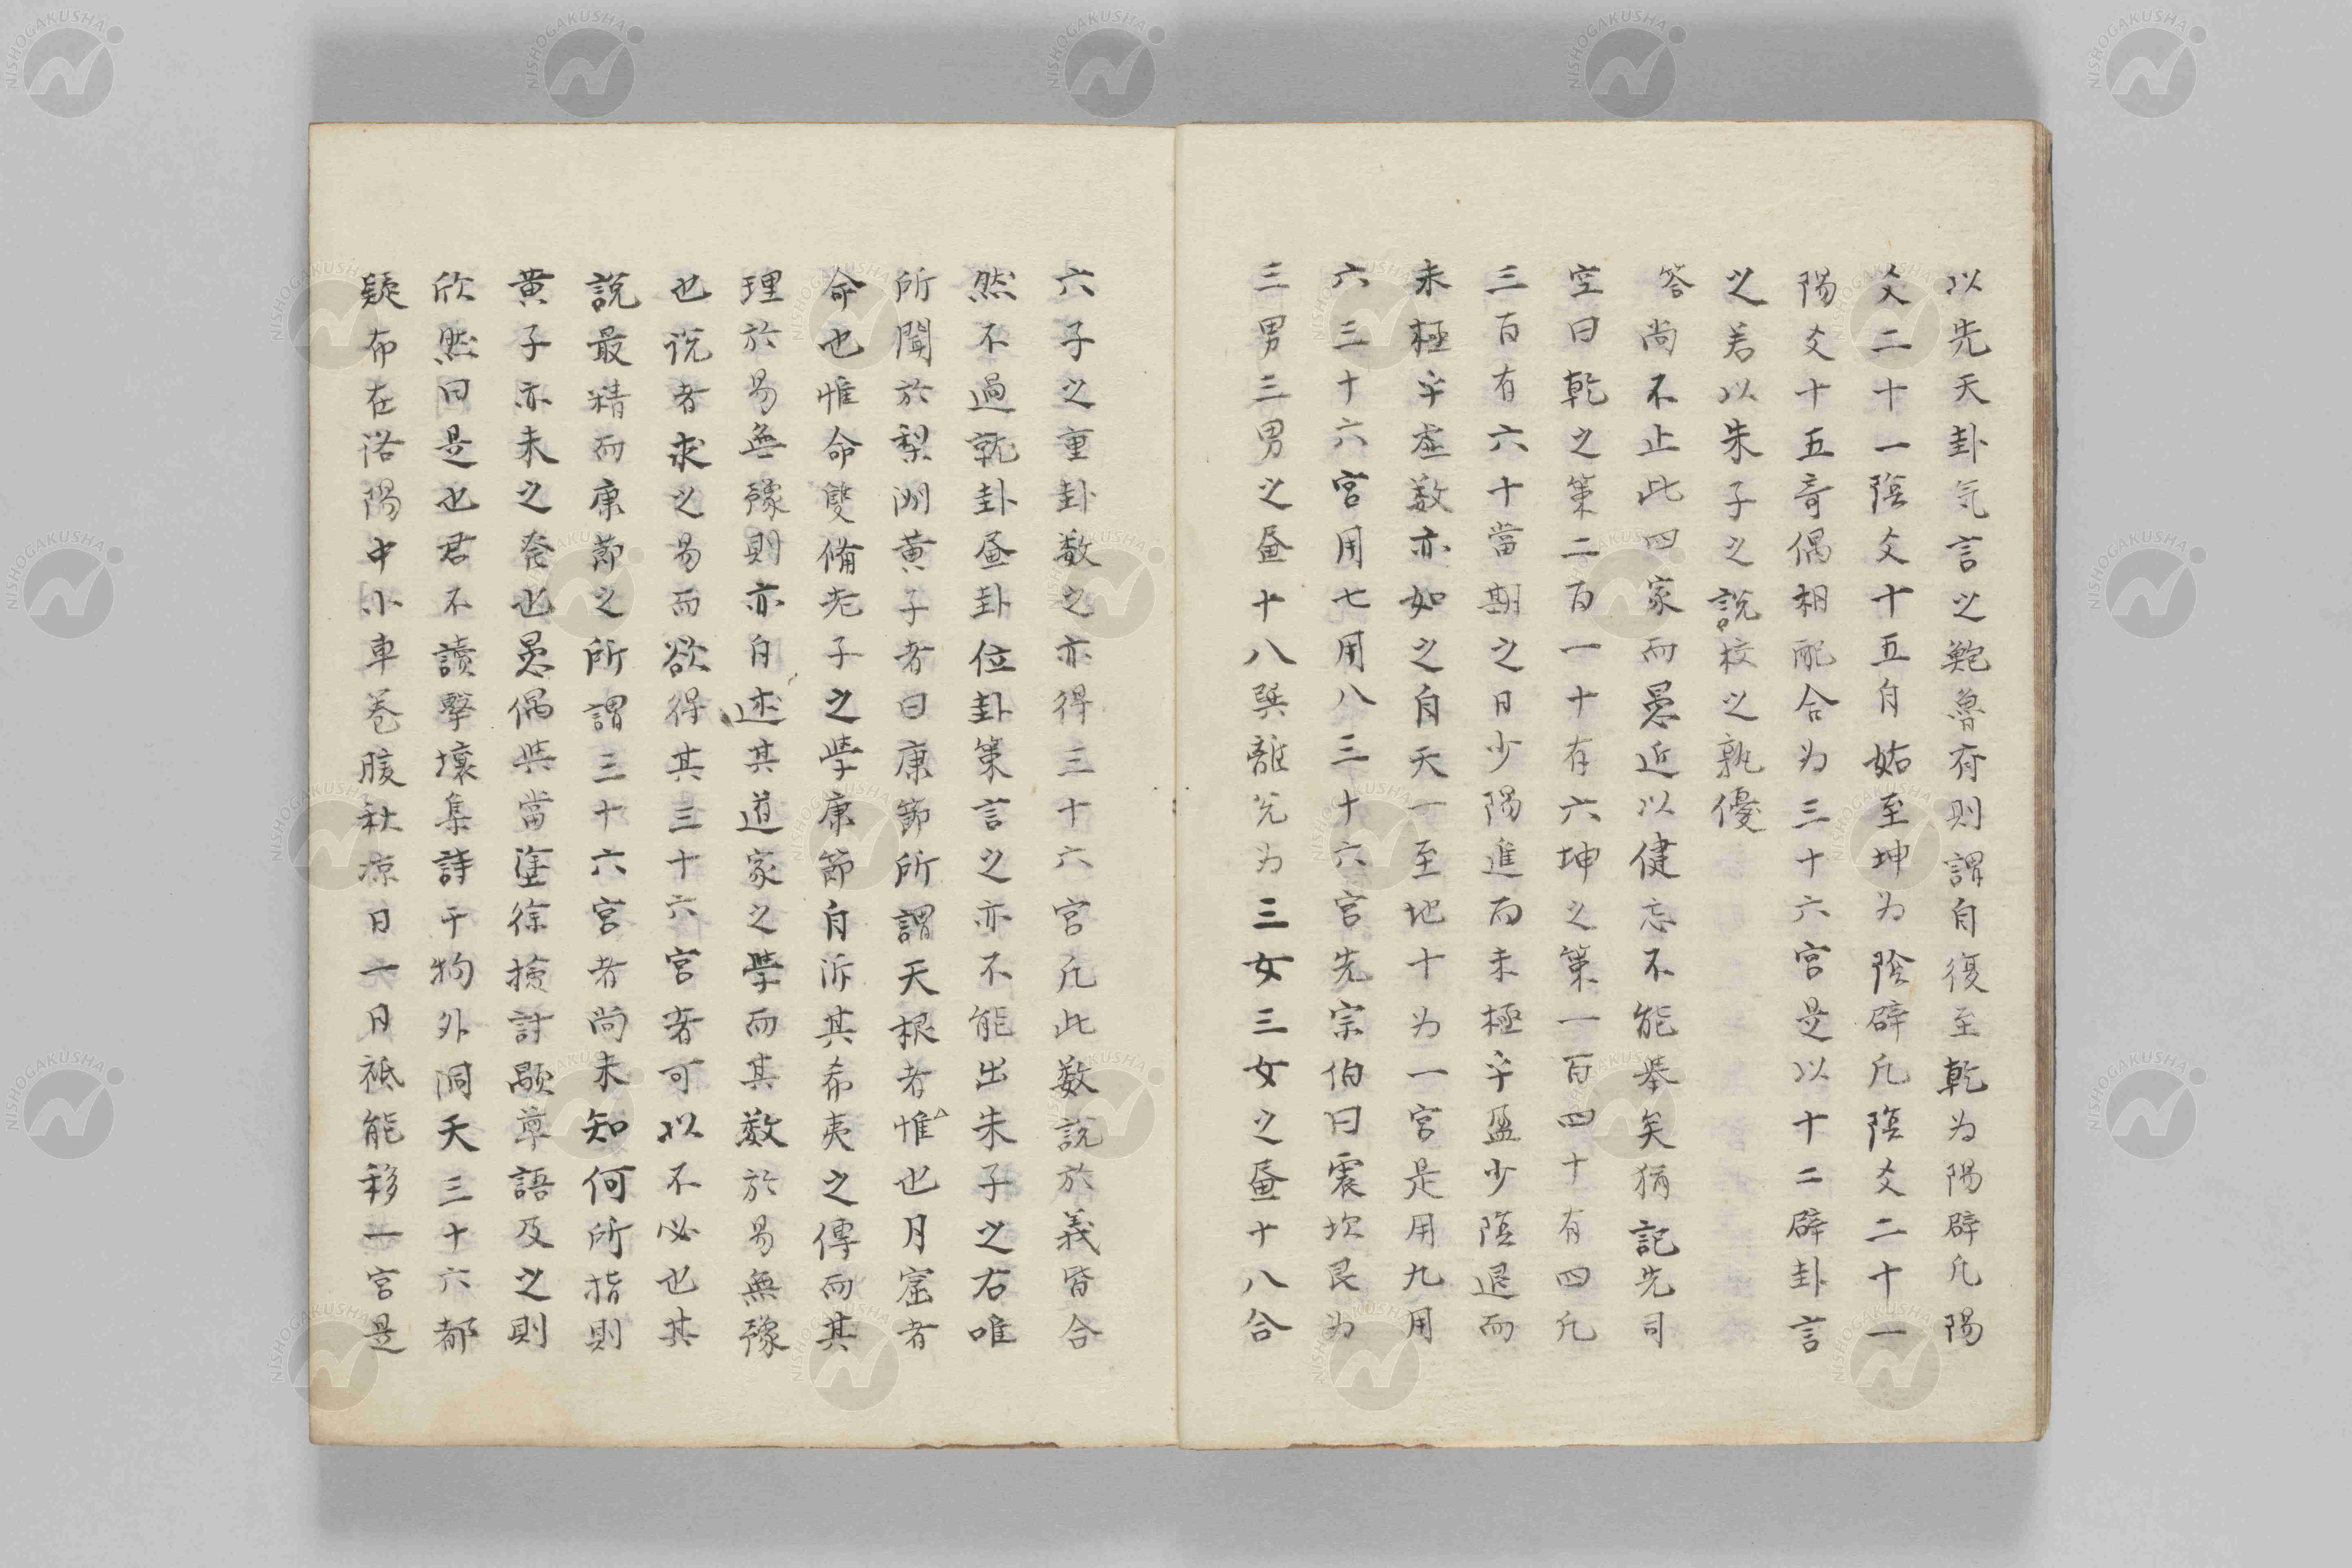 以先天卦気言之鮑魯斎則謂自復至乾為陽辟凡陽
爻二十一陰爻十五自姤至坤為陰辟凡陰爻二十一
陽爻十五奇偶相配合为三十六宮是以十二辟卦言
之若以朱子之說校之孰優
答尚不止此四家而愚近以健忘不能举矣猶記先司
空曰乾之策二百一十有六坤之策一百四十有四凡
三百有六十當期之日少陽進而未極乎盈少陰退而
未極乎虛数亦如之自天一至地十为一宮是用九用
六三十六宮用七用八三十六宮先宗伯曰震坎艮为
三男三男之畫十八巽離兌为三女三女之畫十八合
六子之重卦数之亦得三十六宮凡此数說於義皆合
然不過就卦畫卦位卦策言之亦不能出朱子之右唯
所聞於梨洲黄子者曰康節所謂天根者惟也月窟者
命也惟命雙脩老子之學康節自泝其希夷之傳而其
理於易無豫則亦自述其道家之學而其数於易無豫
也说者求之易而欲得其三十六宮者可以不必也其
說最精而康節之所謂三十六宮者尚未知何所指則
黄子亦未之発也愚偶與當塗徐檢討歇菴語及之則
欣然曰是也君不讀擊壤集詩乎物外洞天三十六都
疑布在洛陽中小車卷腹秋凉日一月祗能移一宮是
NISHOGAKUSHA